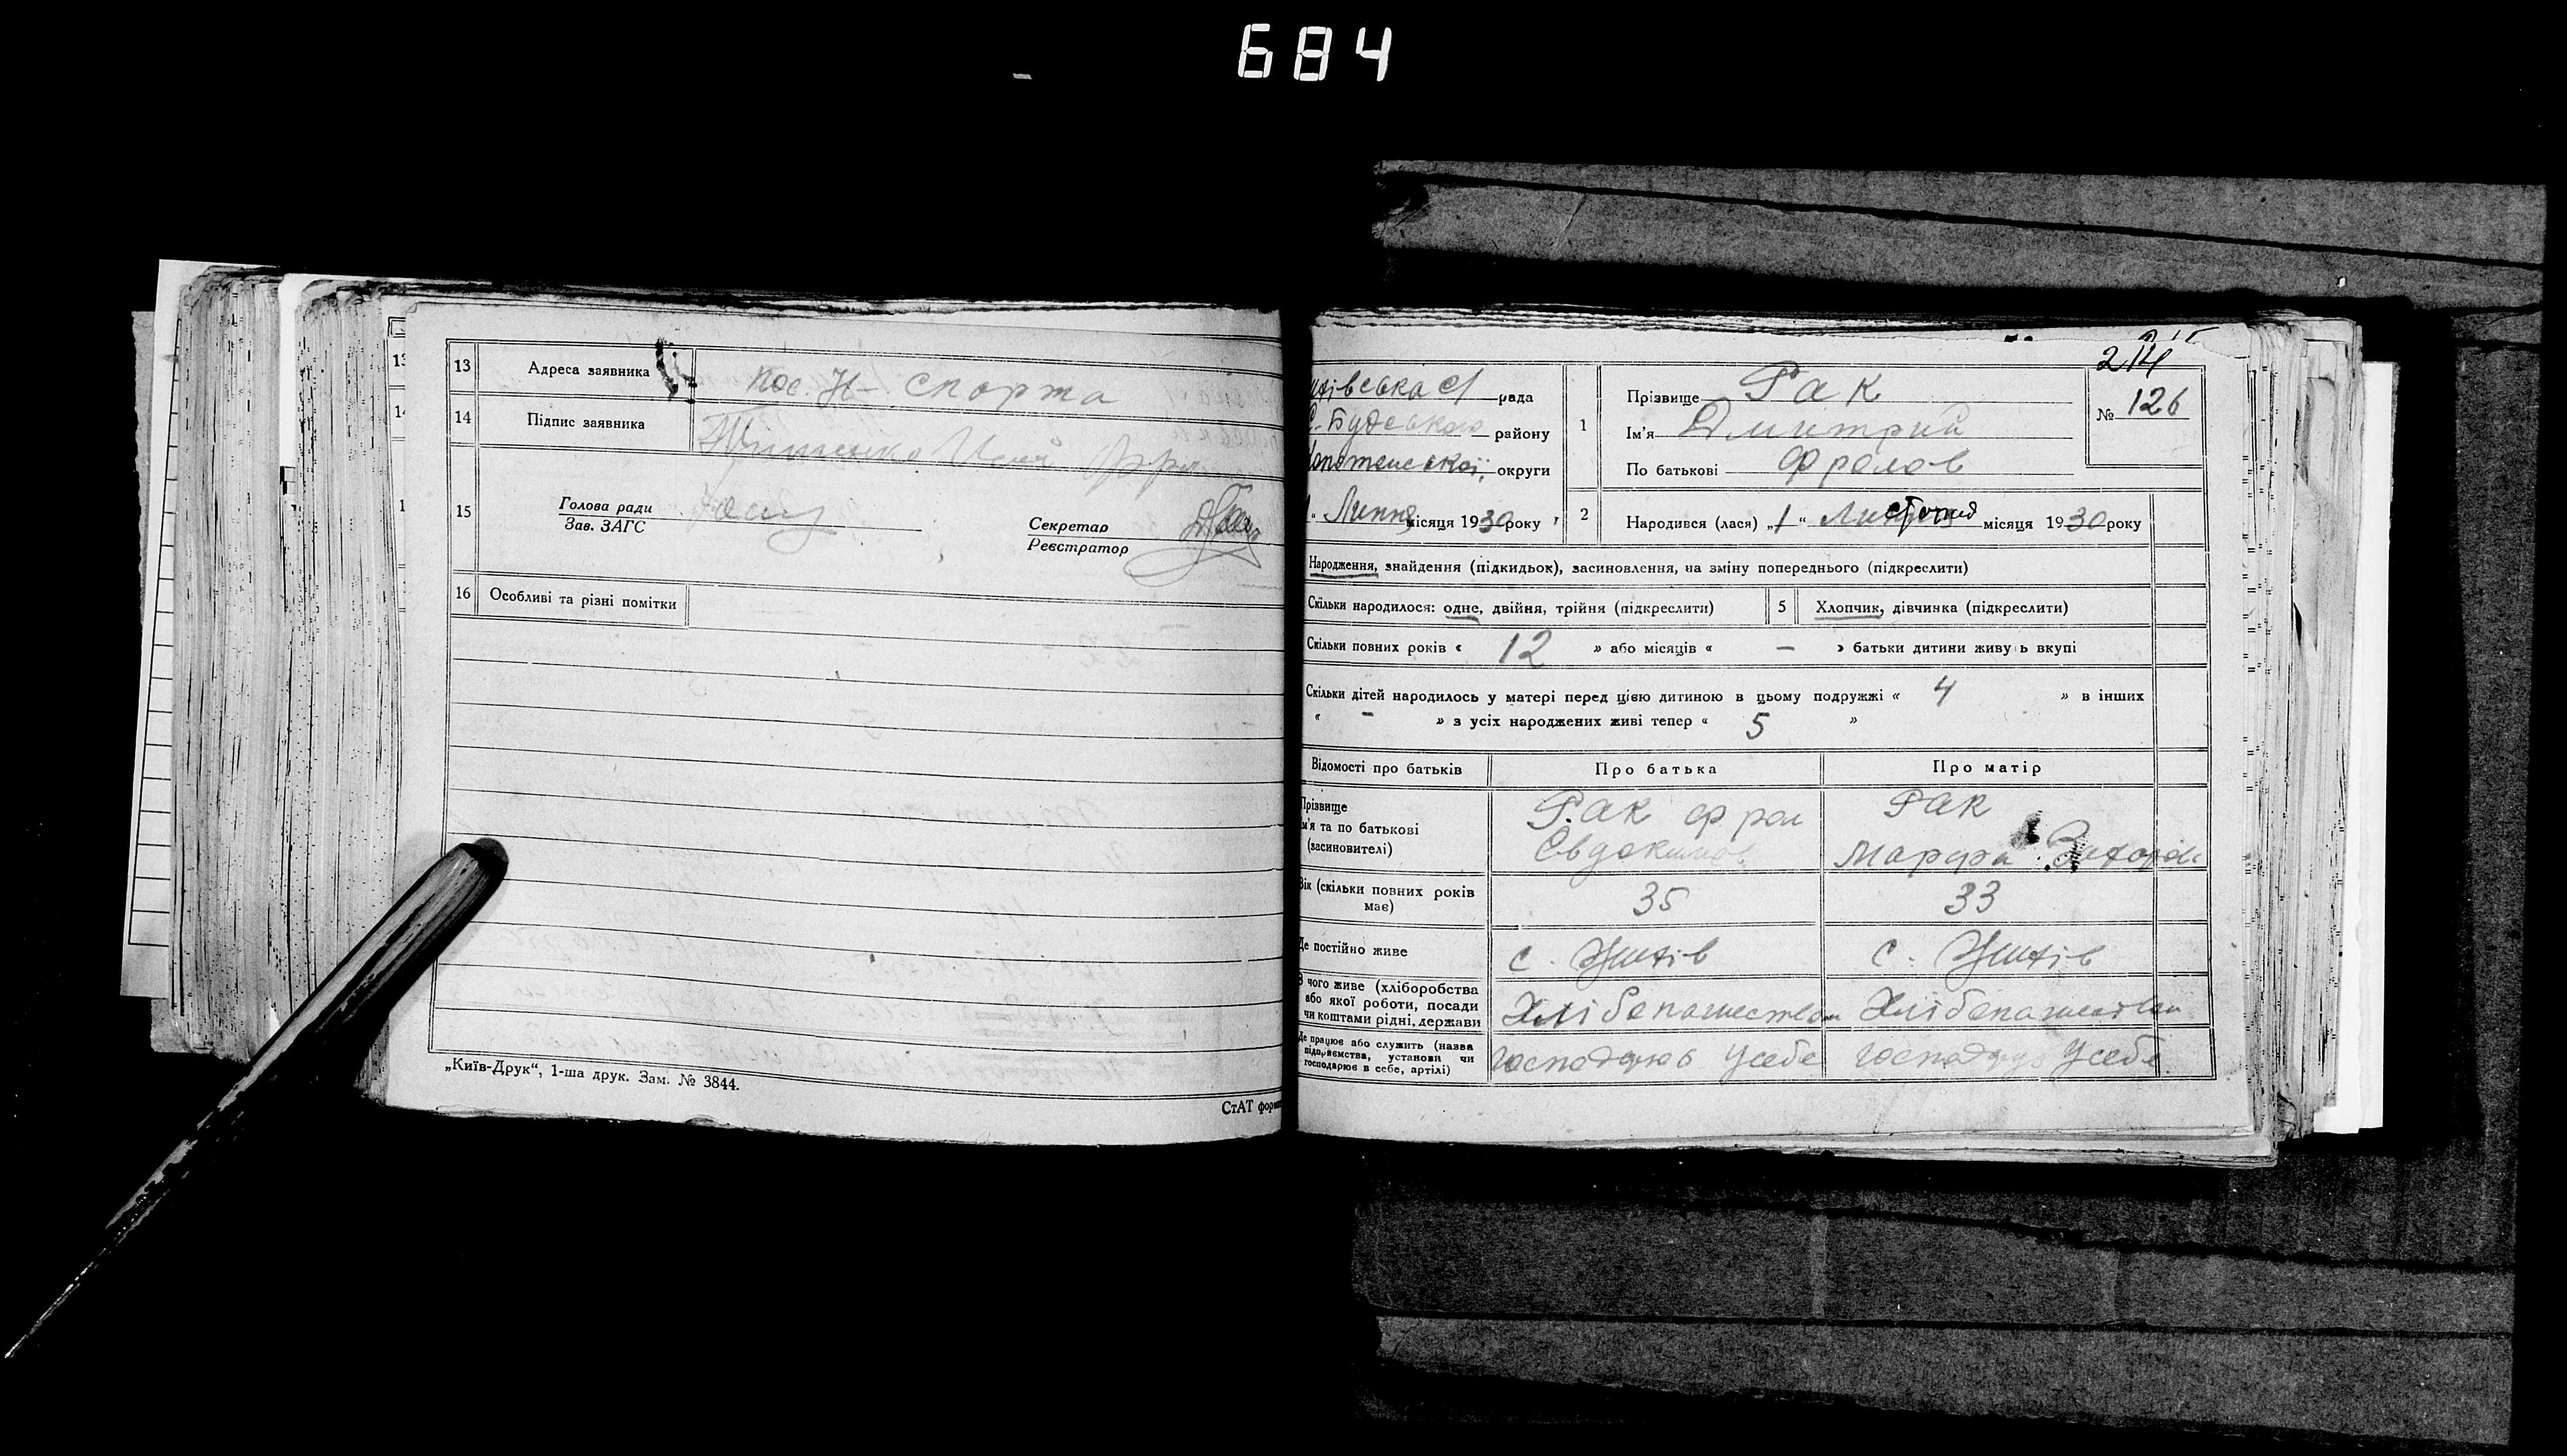 684
13 Адреса заявника пос. Н- Спорта
14 Підпис заявника
15 Голова ради
Зав. ЗАГС
Секретар
Реєстратор
16 Особливі та різні помітки
„Київ-Друк“, 1-ша друк. Зам. № 3844.
СтАТ форм
214
№ 126
рада
С.-Будського району
округи
Липня місяця 1930 року
1 Прізвище Рак
Ім’я Дмитрий
По батькові Фролов
2 Народився (лася) „1“ місяця 1930 року
Народження, знайдення (підкидьок), засиновлення, на зміну попереднього (підкреслити)
Скільки народилося: одне, двійня, трійня (підкреслити) 5 Хлопчик, дівчинка (підкреслити)
Скільки повних років « 12 » або місяців « – » батьки дитини живуть вкупі
Скільки дітей народилось у матері перед цією дитиною в цьому подружжі « 4 » в інших
« – » з усіх народжених живі тепер « 5 »
Відомості про батьків Про батька Про матір
Прізвище
ім’я та по батькові
(засиновителі)
Рак Фрол
Евдокимов
Рак
Марфа
Вік (скільки повних років
має)
35 33
Де постійно живе с. Жихів с. Жихів
З чого живе (хліборобства
або якої роботи, посади
чи коштами рідні, держави
Хлібопашеством Хлібопашеством
Де працює або служить (назва
підприємства, установи чи
господарює в себе, артілі)
Господарює у себе господарує у себе